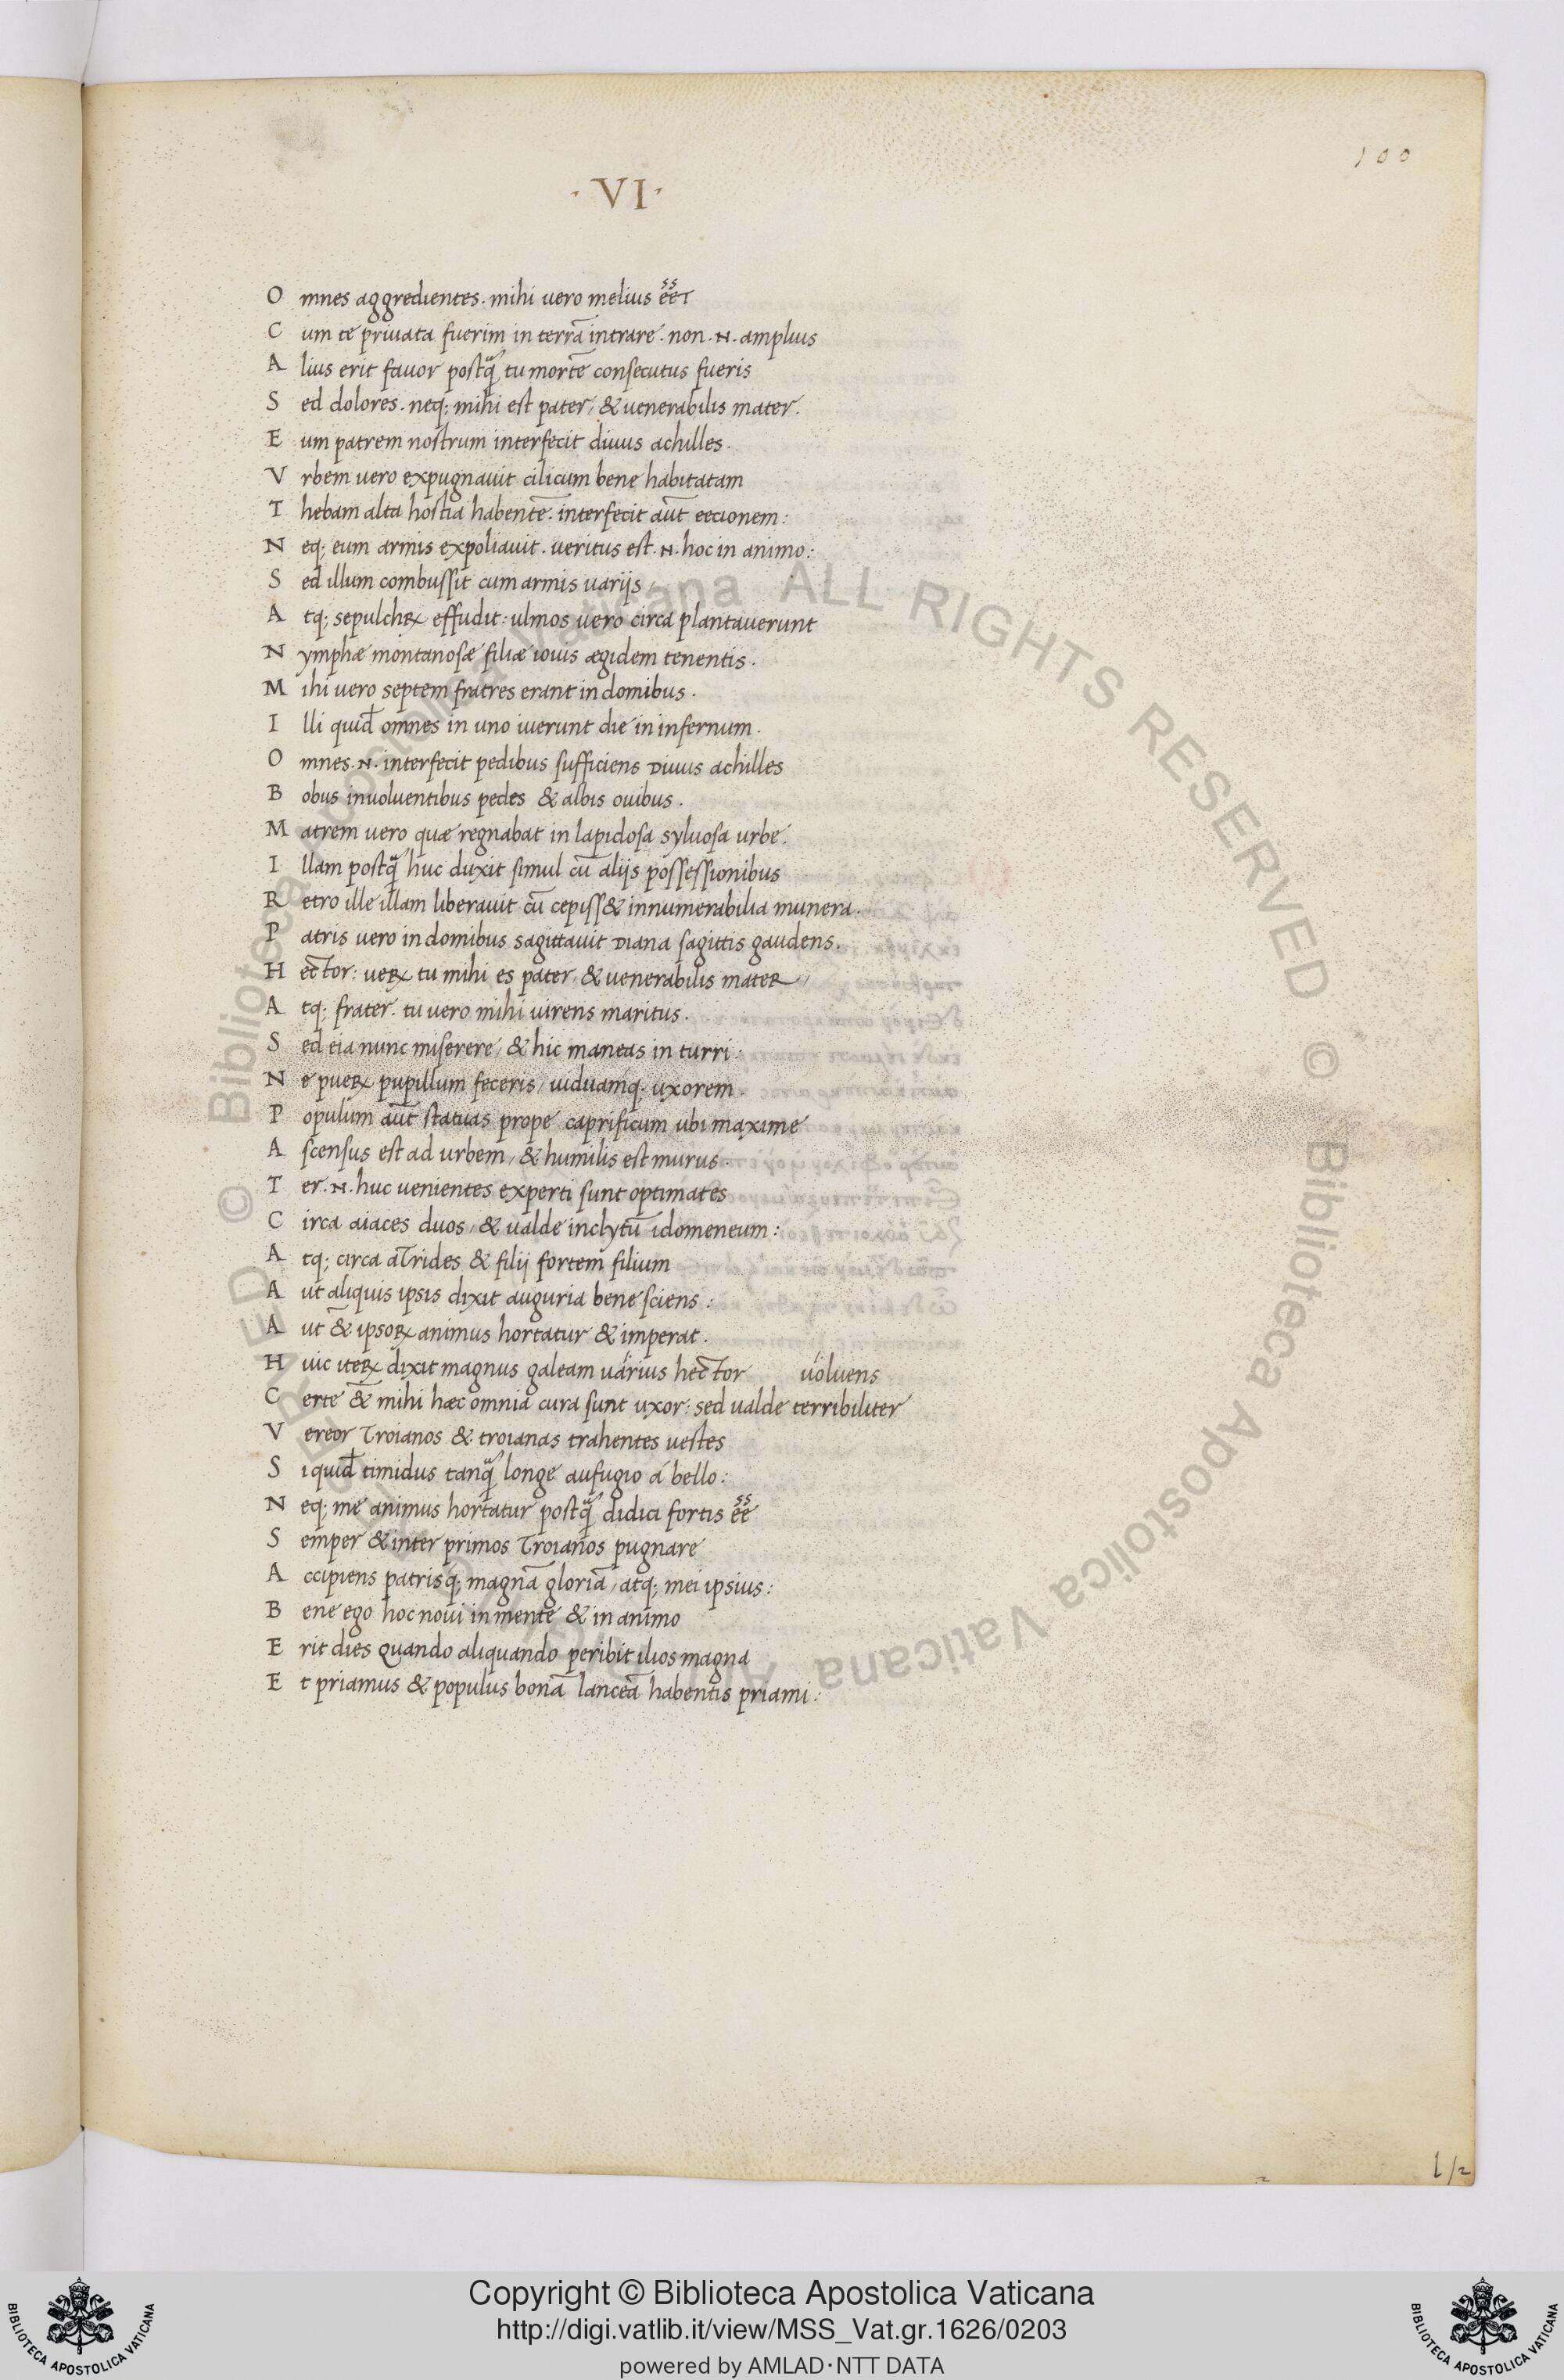 100
· VI ·
O mnes aggredientes. mihi uero melius ee͛t
C um te priuata fuerim in terrā intrare. non .N. amplius
A lius erit fauor postq̃ tu mortē consecutus fueris
S ed dolores. neq; mihi est pater, & uenerabilis mater.
E um patrem nostrum interfecit diuus achilles.
V rbem uero expugnauit cilicum bene habitatam
T hebam alta hostia habentē. interfecit aūt eecionem:
N eq; eum armis expoliauit. ueritus est .N. hoc in animo:
S ed illum combussit cum armis uarijs,
A tq; sepulchꝝ effudit: ulmos uero circa plantauerunt
N ymphæ montanosæ filiæ iouis ægidem tenentis.
M ihi uero septem fratres erant in domibus.
I lli quid̄ omnes in uno iuerunt die in infernum.
O mnes .N. interfecit pedibus sufficiens Diuus achilles
B obus inuoluentibus pedes & albis ouibus.
M atrem uero quæ regnabat in lapidosa syluosa urbe.
I llam postq̃ huc duxit simul cū alijs possessionibus
R etro ille illam liberauit cū cepiss& innumerabilia munera.
P atris uero in domibus sagittauit Diana sagittis gaudens.
H ector: ueꝝ tu mihi es pater, & uenerabilis mateR,
A tq; frater. tu uero mihi uirens maritus.
S ed eia nunc miserere, & hic maneas in turri:
N e pueꝝ pupillum feceris, uiduamq; uxorem.
P opulum aūt statuas prope caprificum ubi maxime
A scensus est ad urbem, & humilis est murus.
T er .N. huc uenientes experti sunt optimates
C irca aiaces duos, & ualde inclytū idomeneum:
A tq; circa atrides & filij fortem filium
A ut aliquis ipsis dixit auguria bene sciens:
A ut &̄ ipsoꝝ animus hortatur & imperat.
H uic iteꝝ dixit magnus galeam uarius hector uoluens
C erte &̄ mihi hæc omnia cura sunt uxor: sed ualde terribiliter
V ereor Troianos & troianas trahentes uestes
S i quid̄ timidus tanq̃ longe aufugio á bello:
N eq; me animus hortatur postq̃ didici fortis ee͛
S emper & inter primos Troianos pugnare
A ccipiens patrisq; magnā gloriā, atq; mei ipsius:
B ene ego hoc noui in mente & in animo
E rit dies quando aliquando peribit ilios magna
E t priamus & populus bonā lanceā habentis priami:
l/2
© Biblioteca Apostolica Vaticana ALL RIGHTS RESERVED © Biblioteca Apostolica Vaticana
Copyright © Biblioteca Apostolica Vaticana
http://digi.vatlib.it/view/MSS_Vat.gr.1626/0203
powered by AMLAD·NTT DATA
BIBLIOTECA APOSTOLICA VATICANA
BIBLIOTECA APOSTOLICA VATICANA